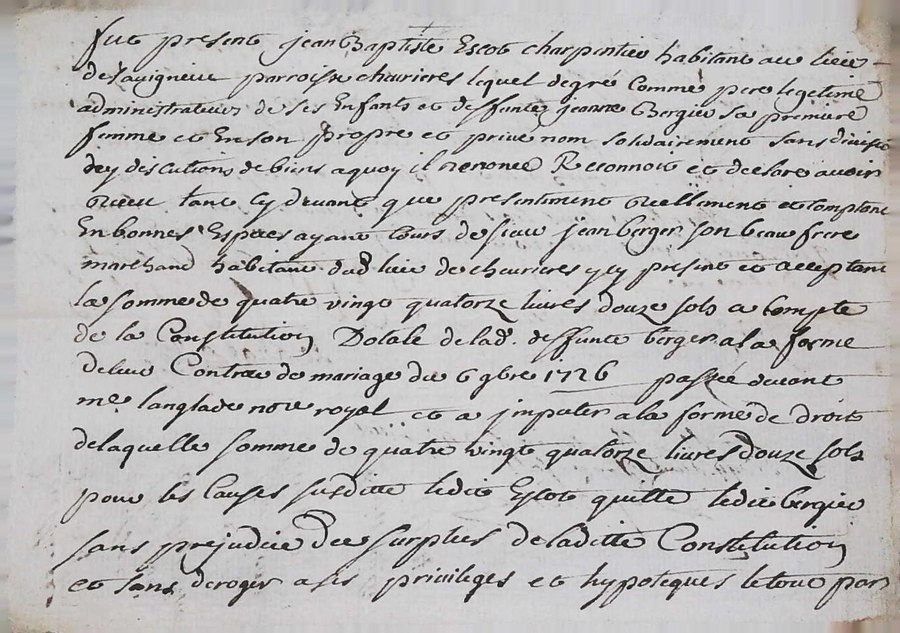 fut present jean Baptiste Escot charpentier habitant au lieu
de Lavigneur parroisse chevrieres lequel de gré Comme pere legitime
administrateur de ses Enfants et deffunte jeanne Bergier sa premiere
femme et En son propre et privé nom solidairement sans division
dey discutions de biens a quoy il renonce Reconnoit et declare avoir
Receu tant Cy devant que presentiment Réelliment et Comptant
En bonnes Especes ayant Cours de sieur jean berger son beau frere
marchand habitant dud lieu de chevrieres y Cy present et acceptant
la somme de quatre vingt quatorze livres douze sols a Compte
de la Constitution Dotale de lad. deffunte berger a la forme
de leur Contrat de mariage du 6 9bre 1726 passée devant
me. langlade nore royal et a jmputer a la forme de droit
de laquelle somme de quatre vingt quatorze livres douze sols
pour les Causes susditte ledit Escot quitte ledit bergier
sans prejudice du surplus de laditte Constitution
et sans deroger a ses privileges et hypoteques le tout par